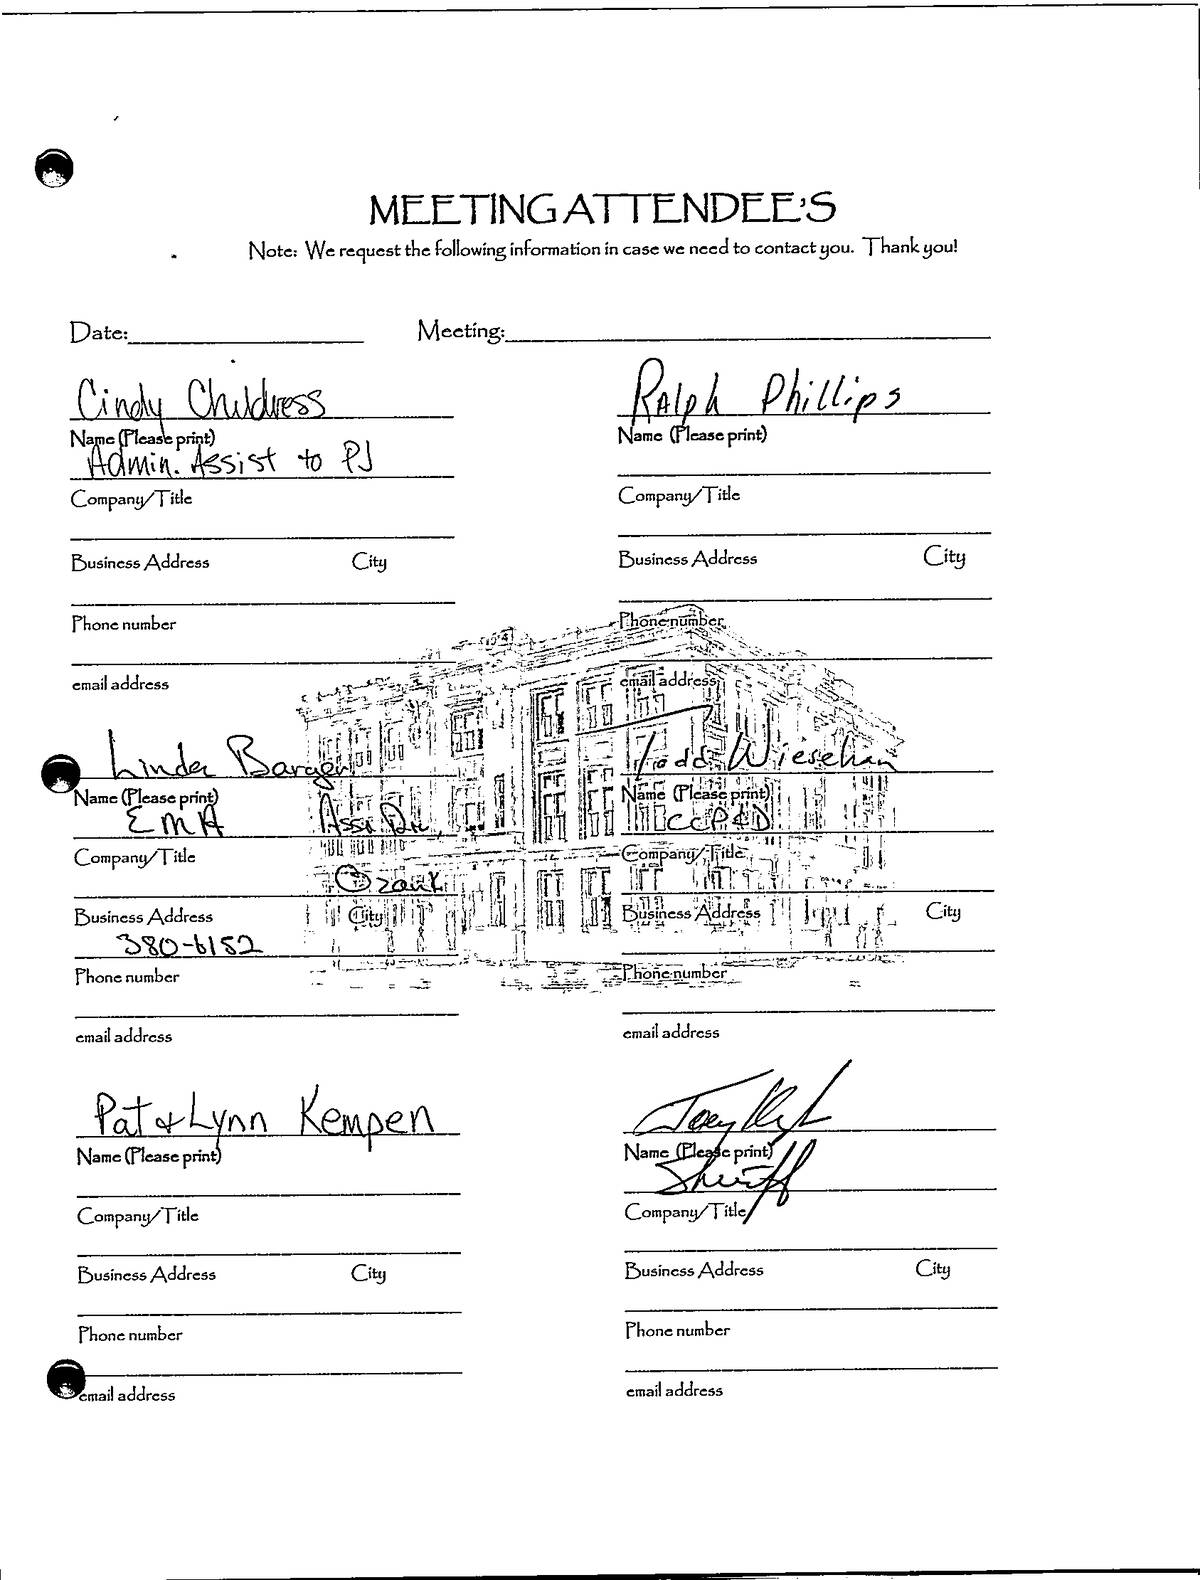 MEETING ATTENDEE'S
Note: We request the following information in case we need to contact you. Thank you!
Date: Meeting:
Cindy Childress
Name (Please print)
Admin. Assist to PJ
Company/Title
Business Address City
Phone number
email address
Ralph Phillips
Name (Please print)
Company/Title
Business Address City
Phone number
email address
Linda Barger
Name (Please print)
EMA Asst Dir.
Company/Title
Ozark
Business Address City
380-6152
Phone number
email address
Todd Wiesehan
Name (Please print)
CCP&D
Company/Title
Business Address City
Phone number
email address
Pat & Lynn Kempen
Name (Please print)
Company/Title
Business Address City
Phone number
email address
Joey
Name (Please print)
Sheriff
Company/Title
Business Address City
Phone number
email address